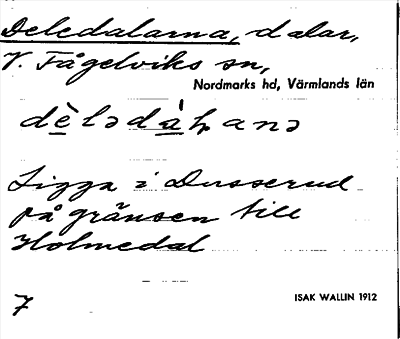 Deledalarna, dalar,
V. Fågelviks sn,
Nordmarks hd, Värmlands län
dèlədàꞕanə
Ligga i Dusserud
på gränsen till
Holmedal
7
ISAK WALLIN 1912